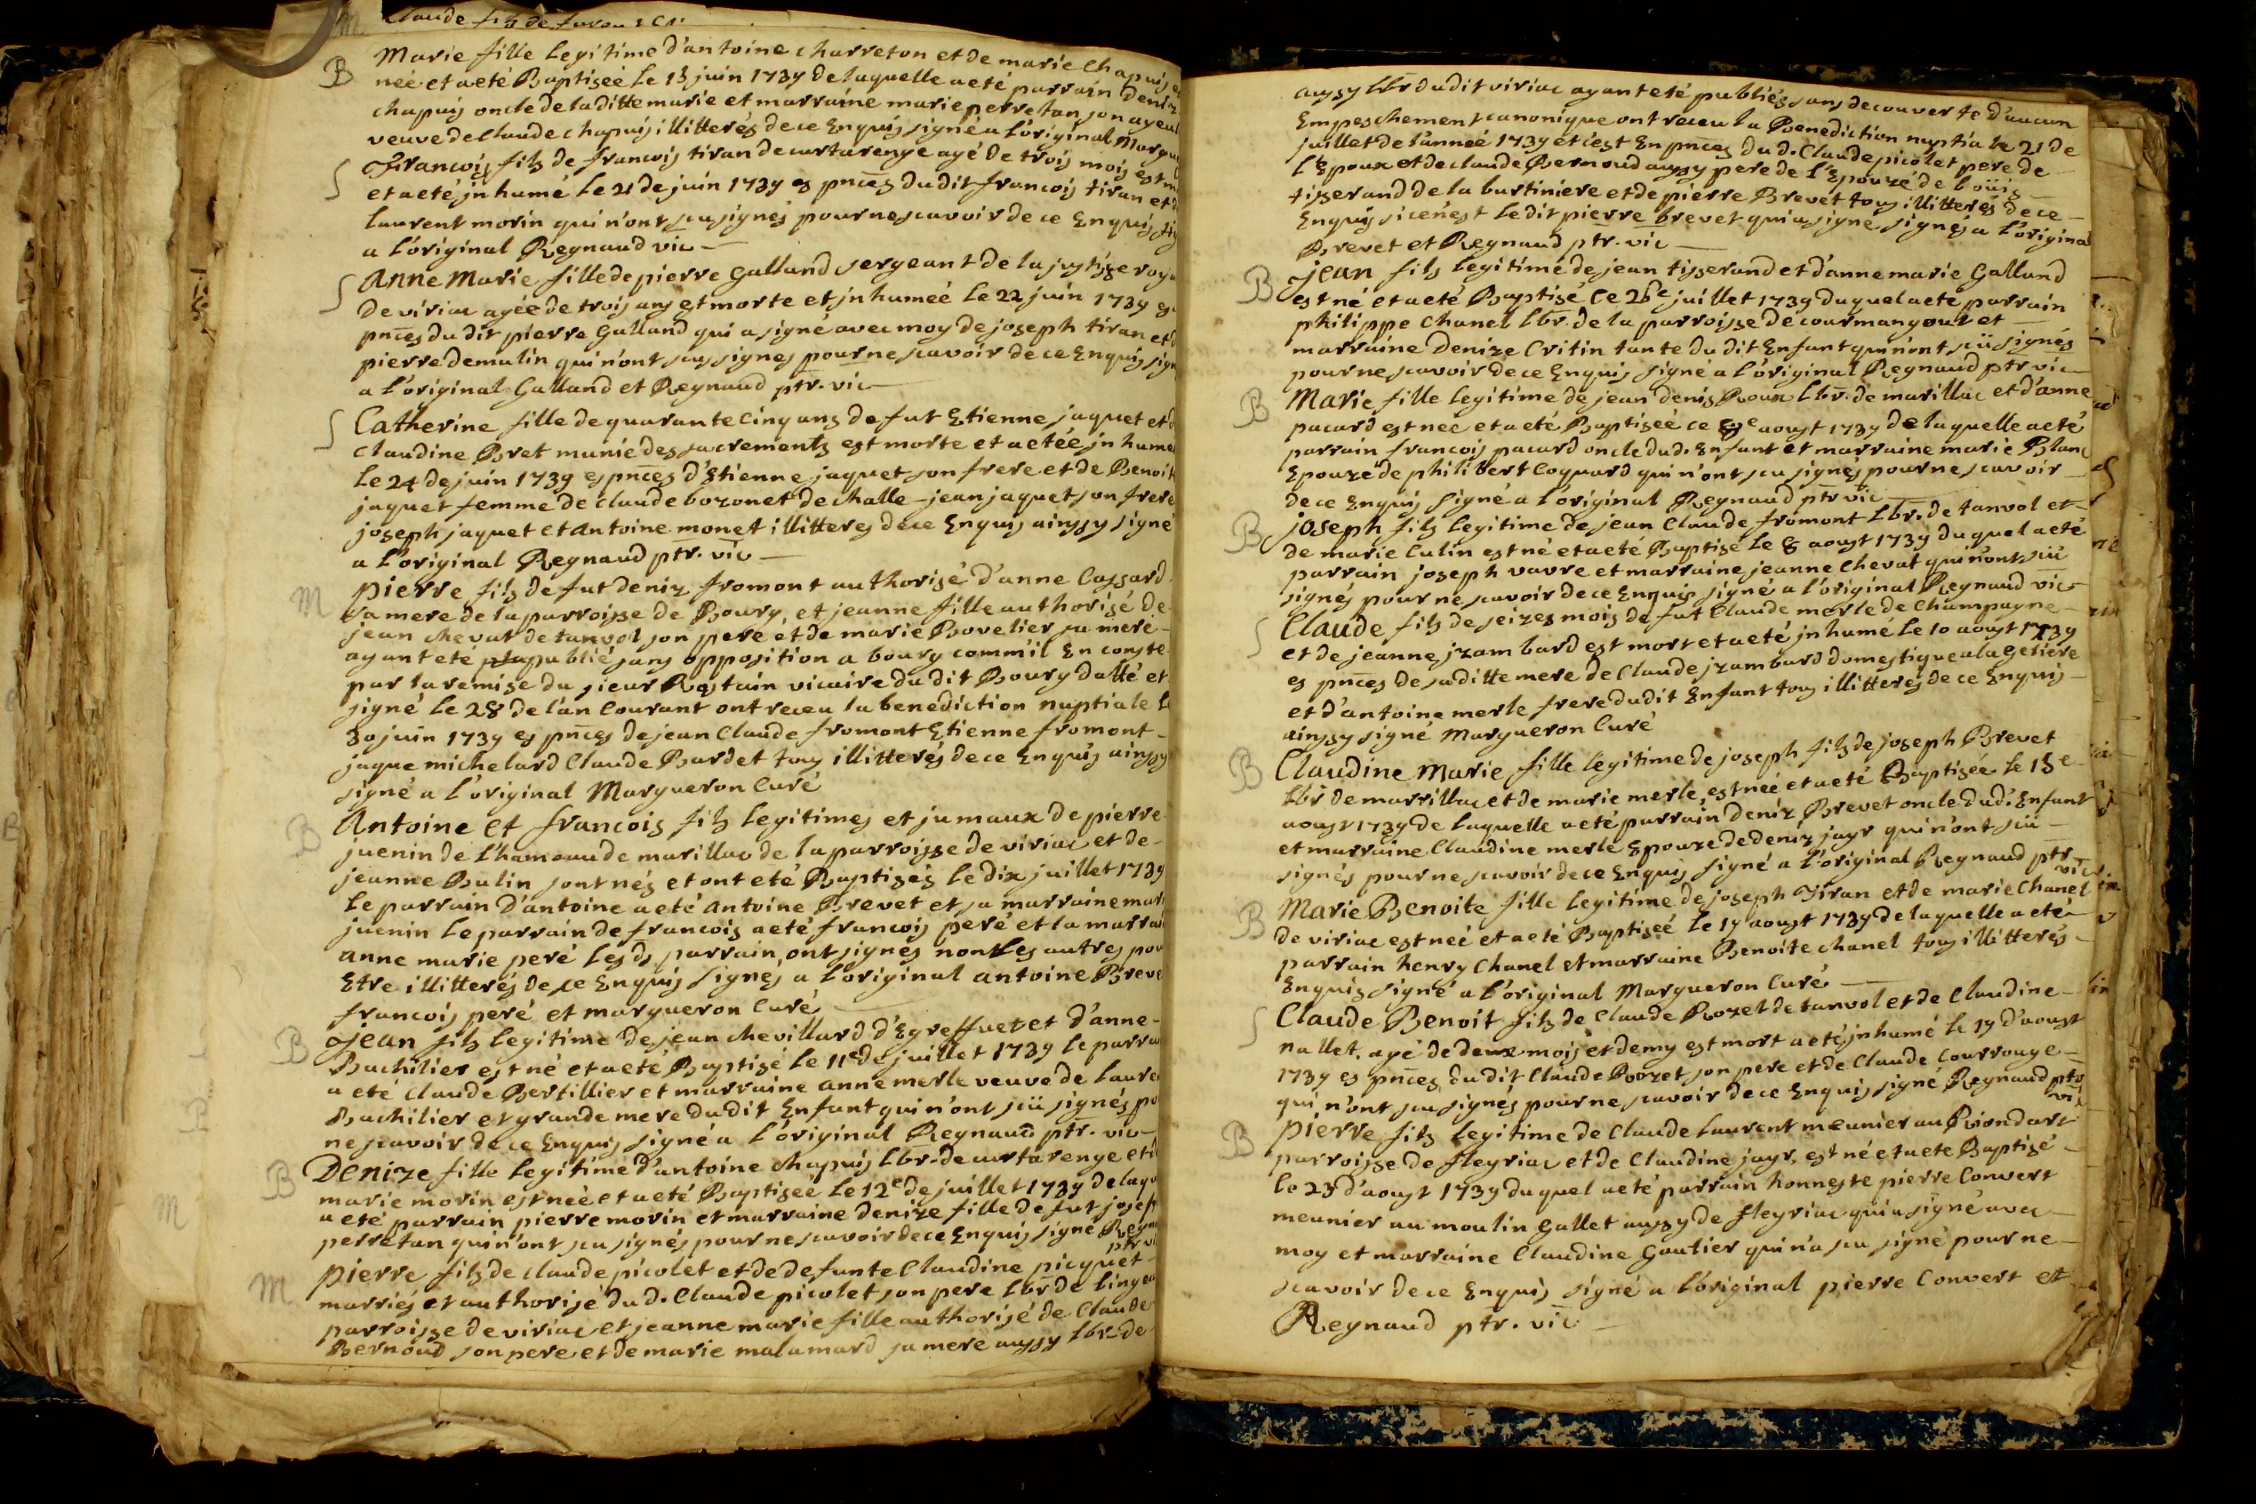 Claude fils de
B Marie fille legitime d'antoine charreton et de marie Chapuis
neé et a eté Baptiseé le 13 juin 1739 de laquelle a eté parrain deniz
chapuis oncle de la ditte marie et marraine marie perretan son ayeul
veuve de Claude chapuis illitterés de ce Enquis signé a l'original Margue
S Francois fils de francois tiran de curtarenge agé de trois mois est
et a eté jnhumé le 21 de juin 1739 es pnces du dit francois tiran et
laurent morin qui n'ont scu signés pour ne scavoir de ce Enquis
a l'original Regnaud vic
S Anne Marie fille de pierre Galland sergeant de la justisse roya
de viriac ageé de trois ans est morte et jnhumeé le 22 juin 1739 es
pnces du dit pierre Galland qui a signé avec moy de joseph tiran et
pierre demalin qui n'ont scu signes pour ne scavoir de ce Enquis sign
a l'original Galland et Regnaud ptr. vic
S Catherine fille de quarante Cinq ans de fut Etienne jaquet et d
Claudine Bret munie des sacrements est morte et a etée jnhumeé
le 24 de juin 1739 es pnces d'Etienne jaquet son frere et de Benoit
jaquet femme de claude bozonet de challe jean jaquet son frere
joseph jaquet et antoine monet illitteres de ce Enquis ainssy signé
a l'original Regnaud ptr. vic
M Pierre fils de fut deniz fromont authorisé d'anne Cassard
sa mere de la parroisse de Bourg, et jeanne fille authorisé de
jean chevat de tanvol son pere et de marie Bovelier sa mere
ayant eté publié sans opposition a bourg commil En conste
par la remise du sieur Restain vicaire du dit Bourg datté et
signé le 28 de l'an Courant ont receu la benediction nuptiale le
30 juin 1739 es pnces de jean Claude fromont Etienne fromont
jaque michelard Claude Bardet tous illitterés de ce Enquis ainssy
signé a l'original Margueron Curé
B Antoine et francois fils legitimes et jumaux de pierre
juenin de l'hameau de marillac de la parroisse de viriac et de
jeanne Bulin sont nés et ont eté Baptisés le dix juillet 1739
le parrain d'antoine a eté antoine Brevet et sa marraine mari
juenin le parrain de francois a eté francois peré et la marrai
anne marie peré les ds parrain ont signés non les autres pou
Etre illitterés de ce Enquis signés a l'original antoine Breve
francois peré et margueron Curé
B Jean fils legitime de jean chevillard d'Egreffuet et d'anne
Buchilier est né et a eté Baptisé le 11e de juillet 1739 le parra
a eté Claude Bertillier et marraine anne merle veuve de laure
Buchilier et grande mere du dit Enfant qui n'ont scü signés po
ne scavoir de ce Enquis signé a l'original Regnaud ptr. vic
B Denize fille legitime d'antoine chapuis lbr. de curtarenge et
marie morin est neé et a eté Baptiseé le 12e de juillet 1739 de laqu
a eté parrain pierre morin et marraine denize fille de fut josep
perretan qui n'ont scu signés pour ne scavoir de ce Enquis signé Regn
ptr vi
M Pierre fils de claude picolet et de defunte Claudine picquet
marriés et authorisé du d. Claude picolet son pere lbr de lingea
parroisse de viriac et jeanne marie fille authorisé de Claude
Bernoud son pere et de marie malamard sa mere aussy lbr. de
aussy lbr du dit viriac ayant eté publiés sans decouverte d'aucun
Empeschement canonique ont receu la Benediction nuptiale 21 de
juillet de l'anneé 1739 et c'est En pnces du d. Claude picolet pere de
l'Epoux et de claude Bernoud aussy pere de l'Epouze de loüis
tisserand de la burtiniere et de pierre Brevet tous illitterés de ce
Enquis si ce n'est le dit pierre brevet qui a signé signés a l'original
Brevet et Regnaud ptr. vic
B Jean fils legitime de jean tisserand et d'anne marie Galland
est né et a eté Baptisé le 26e juillet 1739 duquel a eté parrain
philippe Chanel lbr. de la parroisse de courmangoux et
marraine Denize Critin tante du dit Enfant qui n'ont scü signés
pour ne scavoir de ce Enquis signé a l'original Regnaud ptr vic
B Marie fille legitime de jean denis Roux lbr. de marillac et d'anne
pacard est neé et a eté Baptiseé ce aoust 1739 de laquelle a eté
parrain francois pacard oncle du d. Enfant et marraine marie Blanc
Epouze de philibert Coquard qui n'ont scu signés pour ne scavoir
de ce Enquis signé a l'original Regnaud ptr vic
B Joseph fils legitime de jean Claude fromont lbr. de tanvol et
de marie Culin est né et a eté Baptisé le 8 aoust 1739 duquel a eté
parrain joseph vavre et marraine jeanne Chevat qui n'ont scü
signés pour ne scavoir de ce Enquis signé a l'original Regnaud vic
S Claude fils de seizes mois de fut Claude merle de Champagne
et de jeanne jzambard est mort et a eté jnhumé le 10 aoust 1739
es pnces de sa ditte mere de Claude jzambard domestique a la getiére
et d'antoine merle frere du dit Enfant tous illitterés de ce Enquis
ainssy signé Margueron Curé
B Claudine Marie fille legitime de joseph fils de joseph Brevet
lbr de marrillac et de marie merle, est neé et a eté Baptiseé le 13e
aoust 1739 de laquelle a eté parrain deniz Brevet oncle du d. Enfant
et marraine Claudine merle Epouze de deniz jayr qui n'ont scü
signés pour ne scavoir de ce Enquis signé a l'original Regnaud ptr.
vic
B Marie Benoite fille legitime de joseph Tiran et de marie Chanel
de viriac est neé et a eté Baptiseé le 17 aoust 1739 de laquelle a eté
parrain henry Chanel et marraine Benoite chanel tous illitterés
Enquis signé a l'original Margueron Curé
S Claude Benoit fils de Claude Rozet de tanvol et de Claudine
nallet, agé de deux mois et demy est mort a eté jnhumé le 19 d'aoust
1739 es pnces du dit Claude Rozet son pere et de Claude Courrouge
qui n'ont scu signés pour ne scavoir de ce Enquis signé Regnaud ptr
vic
B Pierre fils legitime de Claude laurent meunier au Riondart
parroisse de fleyriac et de Claudine jayr, est né et a eté Baptisé
le 23 d'aoust 1739 duquel a eté parrain honneste pierre Convert
meunier au moulin Gallet aussy de fleyriac qui a signé avec
moy et marraine Claudine Goutier qui n'a scu signé pour ne
scavoir de ce Enquis signé a l'original pierre Convert et
Regnaud ptr. vic